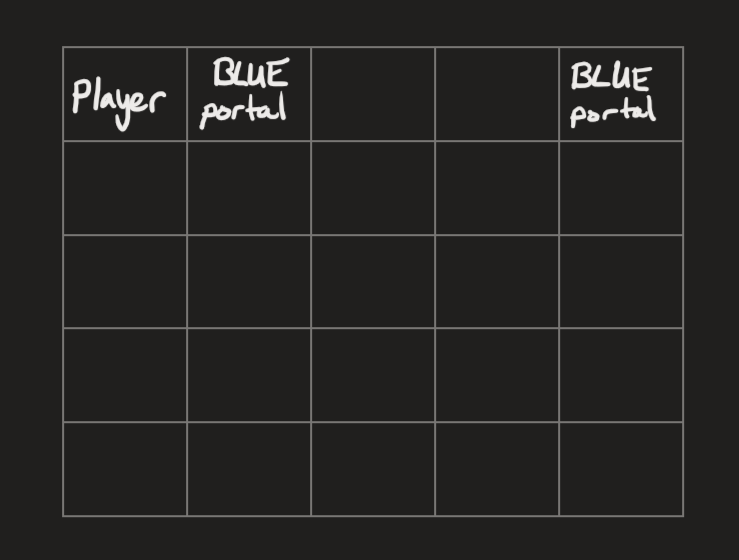 Player
BLUE
portal
BLUE
portal